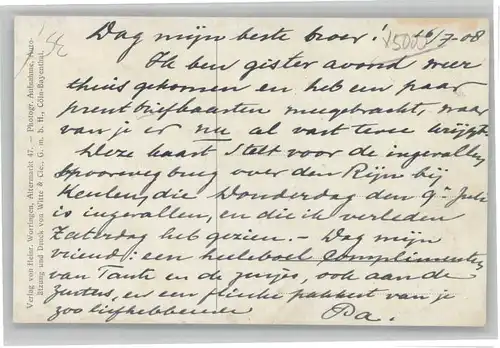 Dag mijn beste broer! 16/7-08
Ik ben gister avond weer
thuis gekomen en heb een paar
prentbriefkaarten meegebracht, waar
van je er nu al vast twee krijgt
Deze kaart stelt voor de ingevallen
spoorwegbrug over den Rijn bij
Keulen, die Donderdag den 9n Juli
is ingevallen, en die ik verleden
Zaterdag heb gezien. Dag mijn
vriend: een heeleboel complimenten
van Tante en de jusjes, ook aan de
zusters, en een flinke pakkert van je
zoo liefhebbende Pa.
Verlag von Heinr. Worringen, Altermarkt 47. — Photogr. Aufnahme, Auto-
ätzung und Druck von Witte & Cie., G. m. b. H., Cöln-Bayenthal.